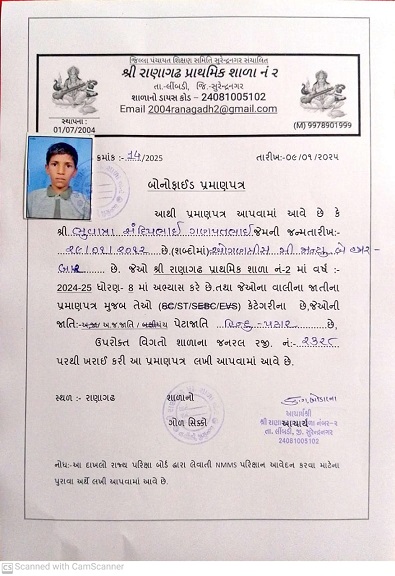 જિલ્લા પંચાયત શિક્ષણ સમિતિ સુરેન્દ્રનગર સંચાલિત
શ્રી રાણાગઢ પ્રાથમિક શાળા નં ૨
તા.-લીંબડી, જિ.-સુરેન્દ્રનગર
શાળાનો ડાયસ કોડ - 24081005102
Email 2004ranagadh2@gmail.com
સ્થાપના :
01/07/2004
(M) 9978901999
ક્રમાંક :-14/2025
તારીખ:-૦૯/૦૧/૨૦૨૫
બોનોફાઈડ પ્રમાણપત્ર
આથી પ્રમાણપત્ર આપવામાં આવે છે કે
શ્રી ગણપતભાઈ જેમની જન્મતારીખ:-
૨૯/૦૧/૨૦૧૨ છે.(શબ્દોમાં) ઓગણત્રીસ જાન્યુ. બે હજાર-
બાર છે. જેઓ શ્રી રાણાગઢ પ્રાથમિક શાળા નં-2 માં વર્ષ :-
2024-25 ધોરણ- 8 માં અભ્યાસ કરે છે.તથા જેઓના વાલીના જાતીના
પ્રમાણપત્ર મુજબ તેઓ (SC/ST/SEBC/EWS) કેટેગરીના છે,જેઓની
જાતિ:- અ.જા/ અ.જ.જાતિ / બક્ષીપંચ પેટાજાતિ હિન્દુ-પઢાર છે,
ઉપરોક્ત વિગતો શાળાના જનરલ રજી. નં:-
પરથી ખરાઈ કરી આ પ્રમાણપત્ર લખી આપવામાં આવે છે.
સ્થળ :- રાણાગઢ
શાળાનો
ગોળ સિક્કો
આચાર્યશ્રી
આચાર્ય
તા. લીંબડી, જી. સુરેન્દ્રનગર
24081005102
નોધ:-આ દાખલો રાજ્ય પરિક્ષા બોર્ડ દ્વારા લેવાતી NMMS પરિક્ષાન આવેદન કરવા માટેના
પુરાવા અર્થે લખી આપવામાં આવે છે.
CS Scanned with CamScanner